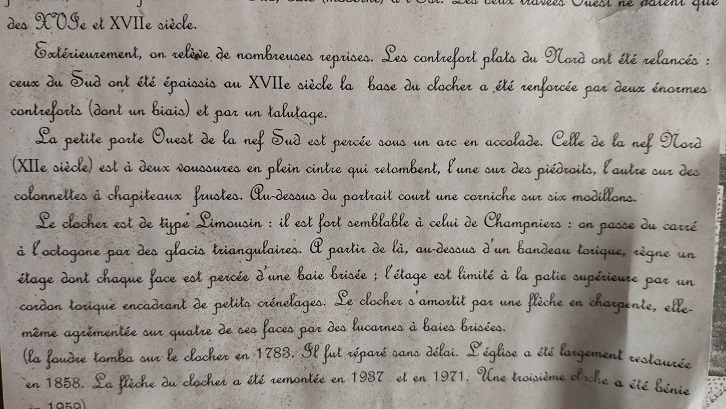 Les deux travées Ouest ne datent que
des XVIe et XVIIe siècle.
Extérieurement, on relève de nombreuses reprises. Les contrefort plats du Nord ont été relancés :
ceux du Sud ont été épaissis au XVIIe siècle la base du clocher a été renforcée par deux énormes
contreforts (dont un biais) et par un talutage.
La petite porte Ouest de la nef Sud est percée sous un arc en accolade. Celle de la nef Nord
(XIIe siècle) est à deux voussures en plein cintre qui retombent, l'une sur des piédroits, l'autre sur des
colonnettes à chapiteaux frustes. Au-dessus du portrait court une corniche sur six modillons.
Le clocher est de type Limousin : il est fort semblable à celui de Champniers : on passe du carré
à l'octogone par des glacis triangulaires. A partir de là, au-dessus d'un bandeau torique, règne un
étage dont chaque face est percée d'une baie brisée ; l'étage est limité à la patie supérieure par un
cordon torique encadrant de petits crénelages. Le clocher s'amortit par une flèche en charpente, elle-
même agrémentée sur quatre de ses faces par des lucarnes à baies brisées.
(la foudre tomba sur le clocher en 1783. Il fut réparé sans délai. L'église a été largement restaurée
en 1858. La flèche du clocher a été remontée en 1937 et en 1971. Une troisième cloche a été bénie
en 1959)